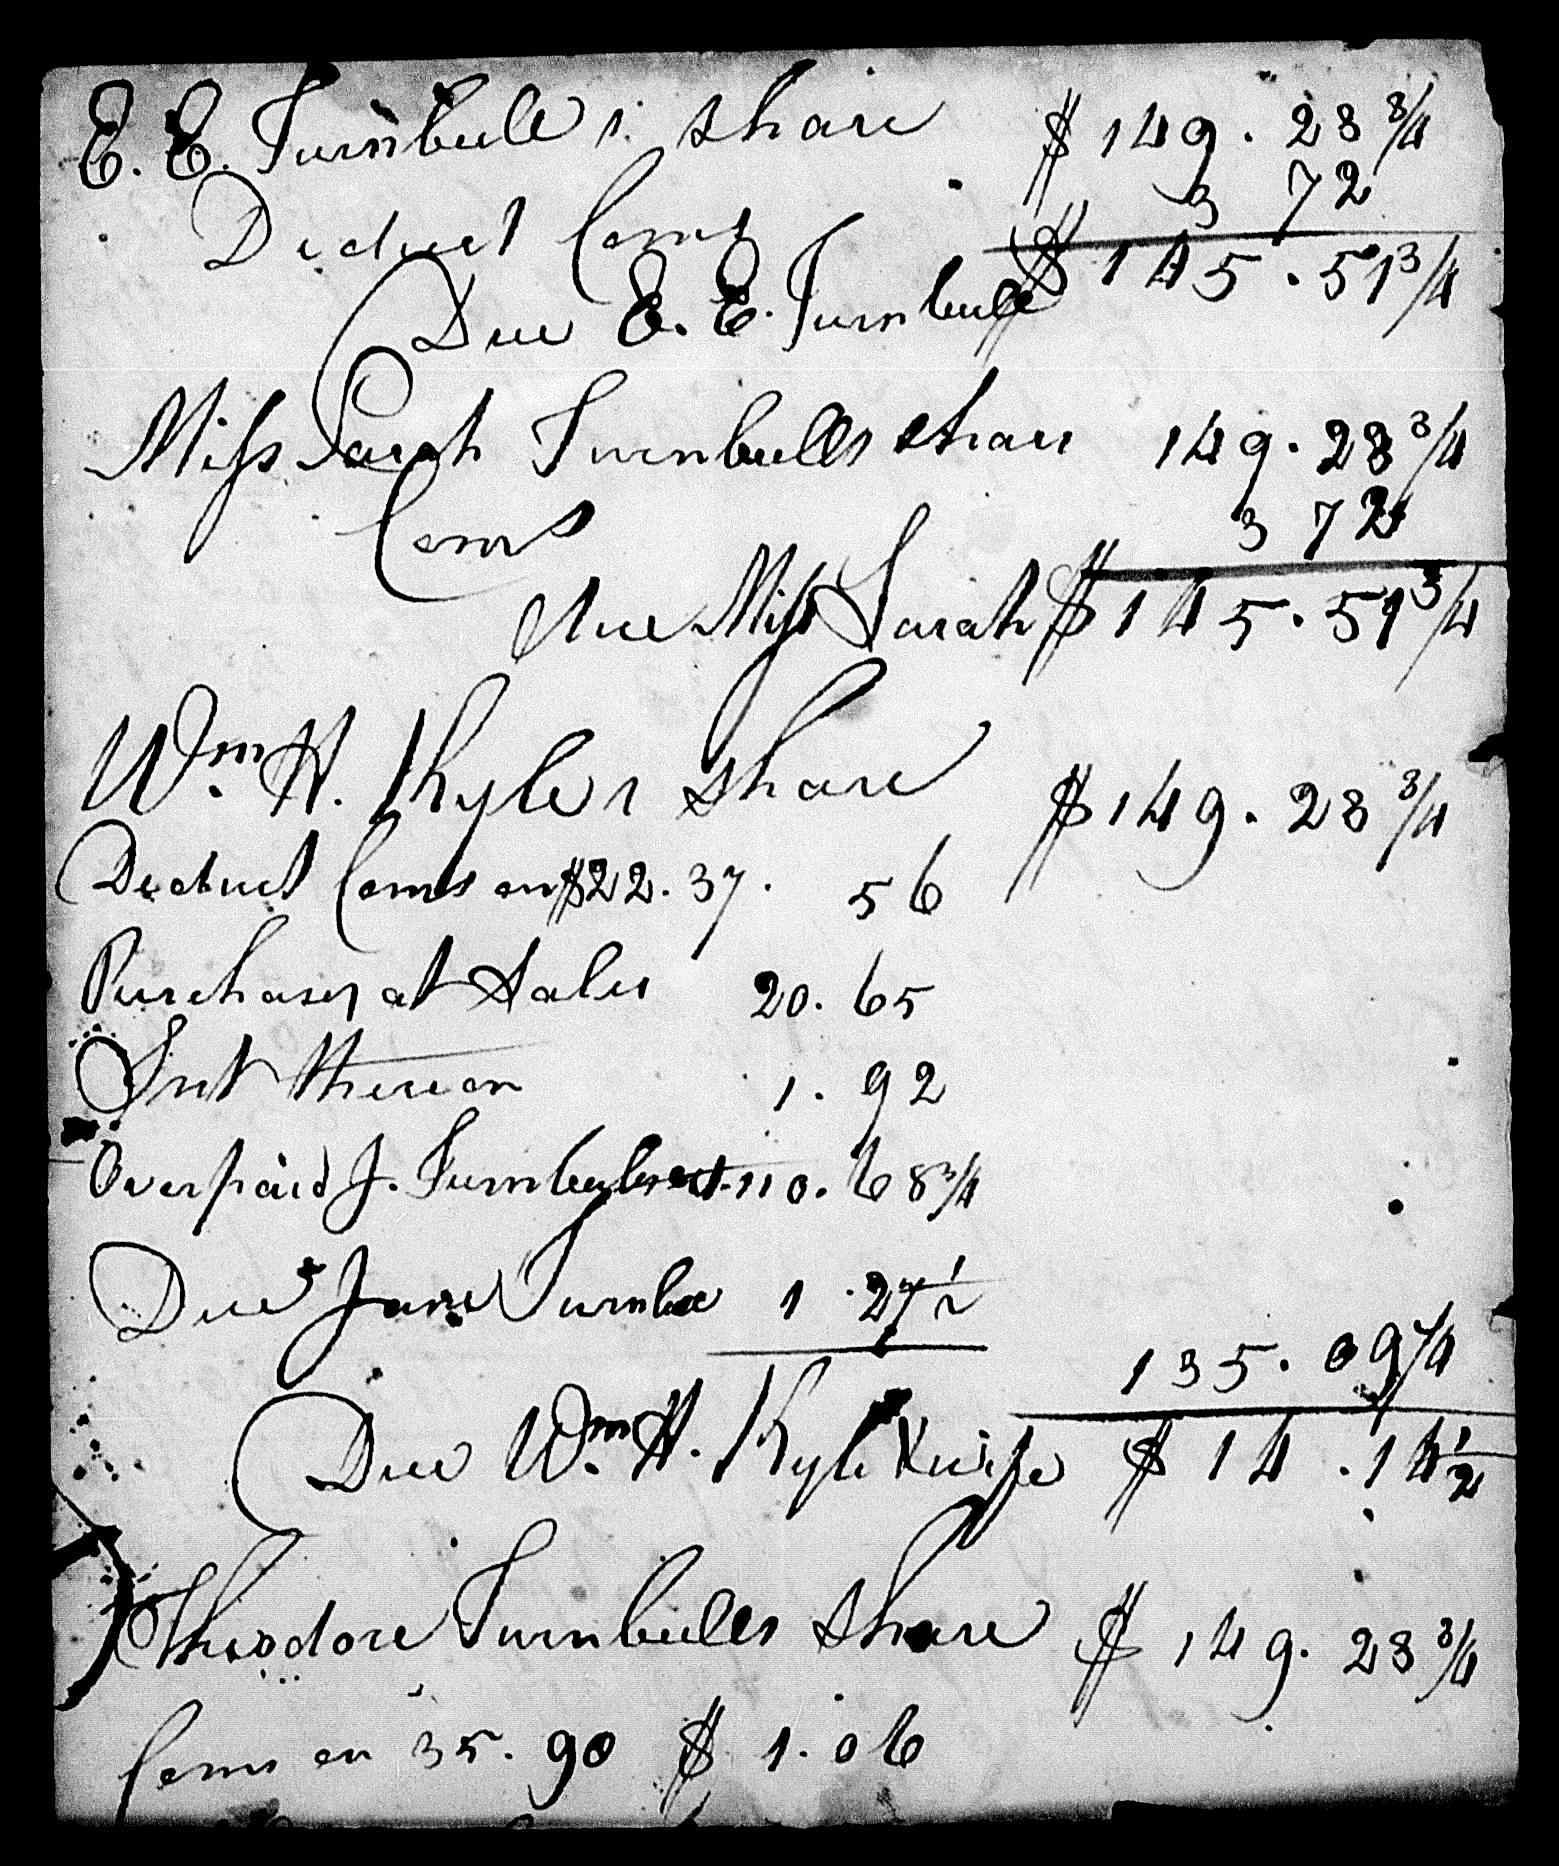 E. E. Turnbull's share $149.23 3/4
Deduct Coms 3 72
Due E. E. Turnbull $145.51 3/4
Miss Sarah Turnbulls share 149.23 3/4
Coms 3 72
Due Miss Sarah $145.51 3/4
Wm H. Kyles share $149.23 3/4
Deduct Coms on $22.37. 56
Purchases at Sales 20.65
Int thereon 1.92
Overpaid J. Turnbulls est. 110.68 3/4
Due Jane Turnbull 1.27 1/2
135.09 1/4
Due Wm H. Kyle & wife $14.14 1/2
Theodore Turnbulls share $149.23 3/4
Coms on 35.90 $1.06